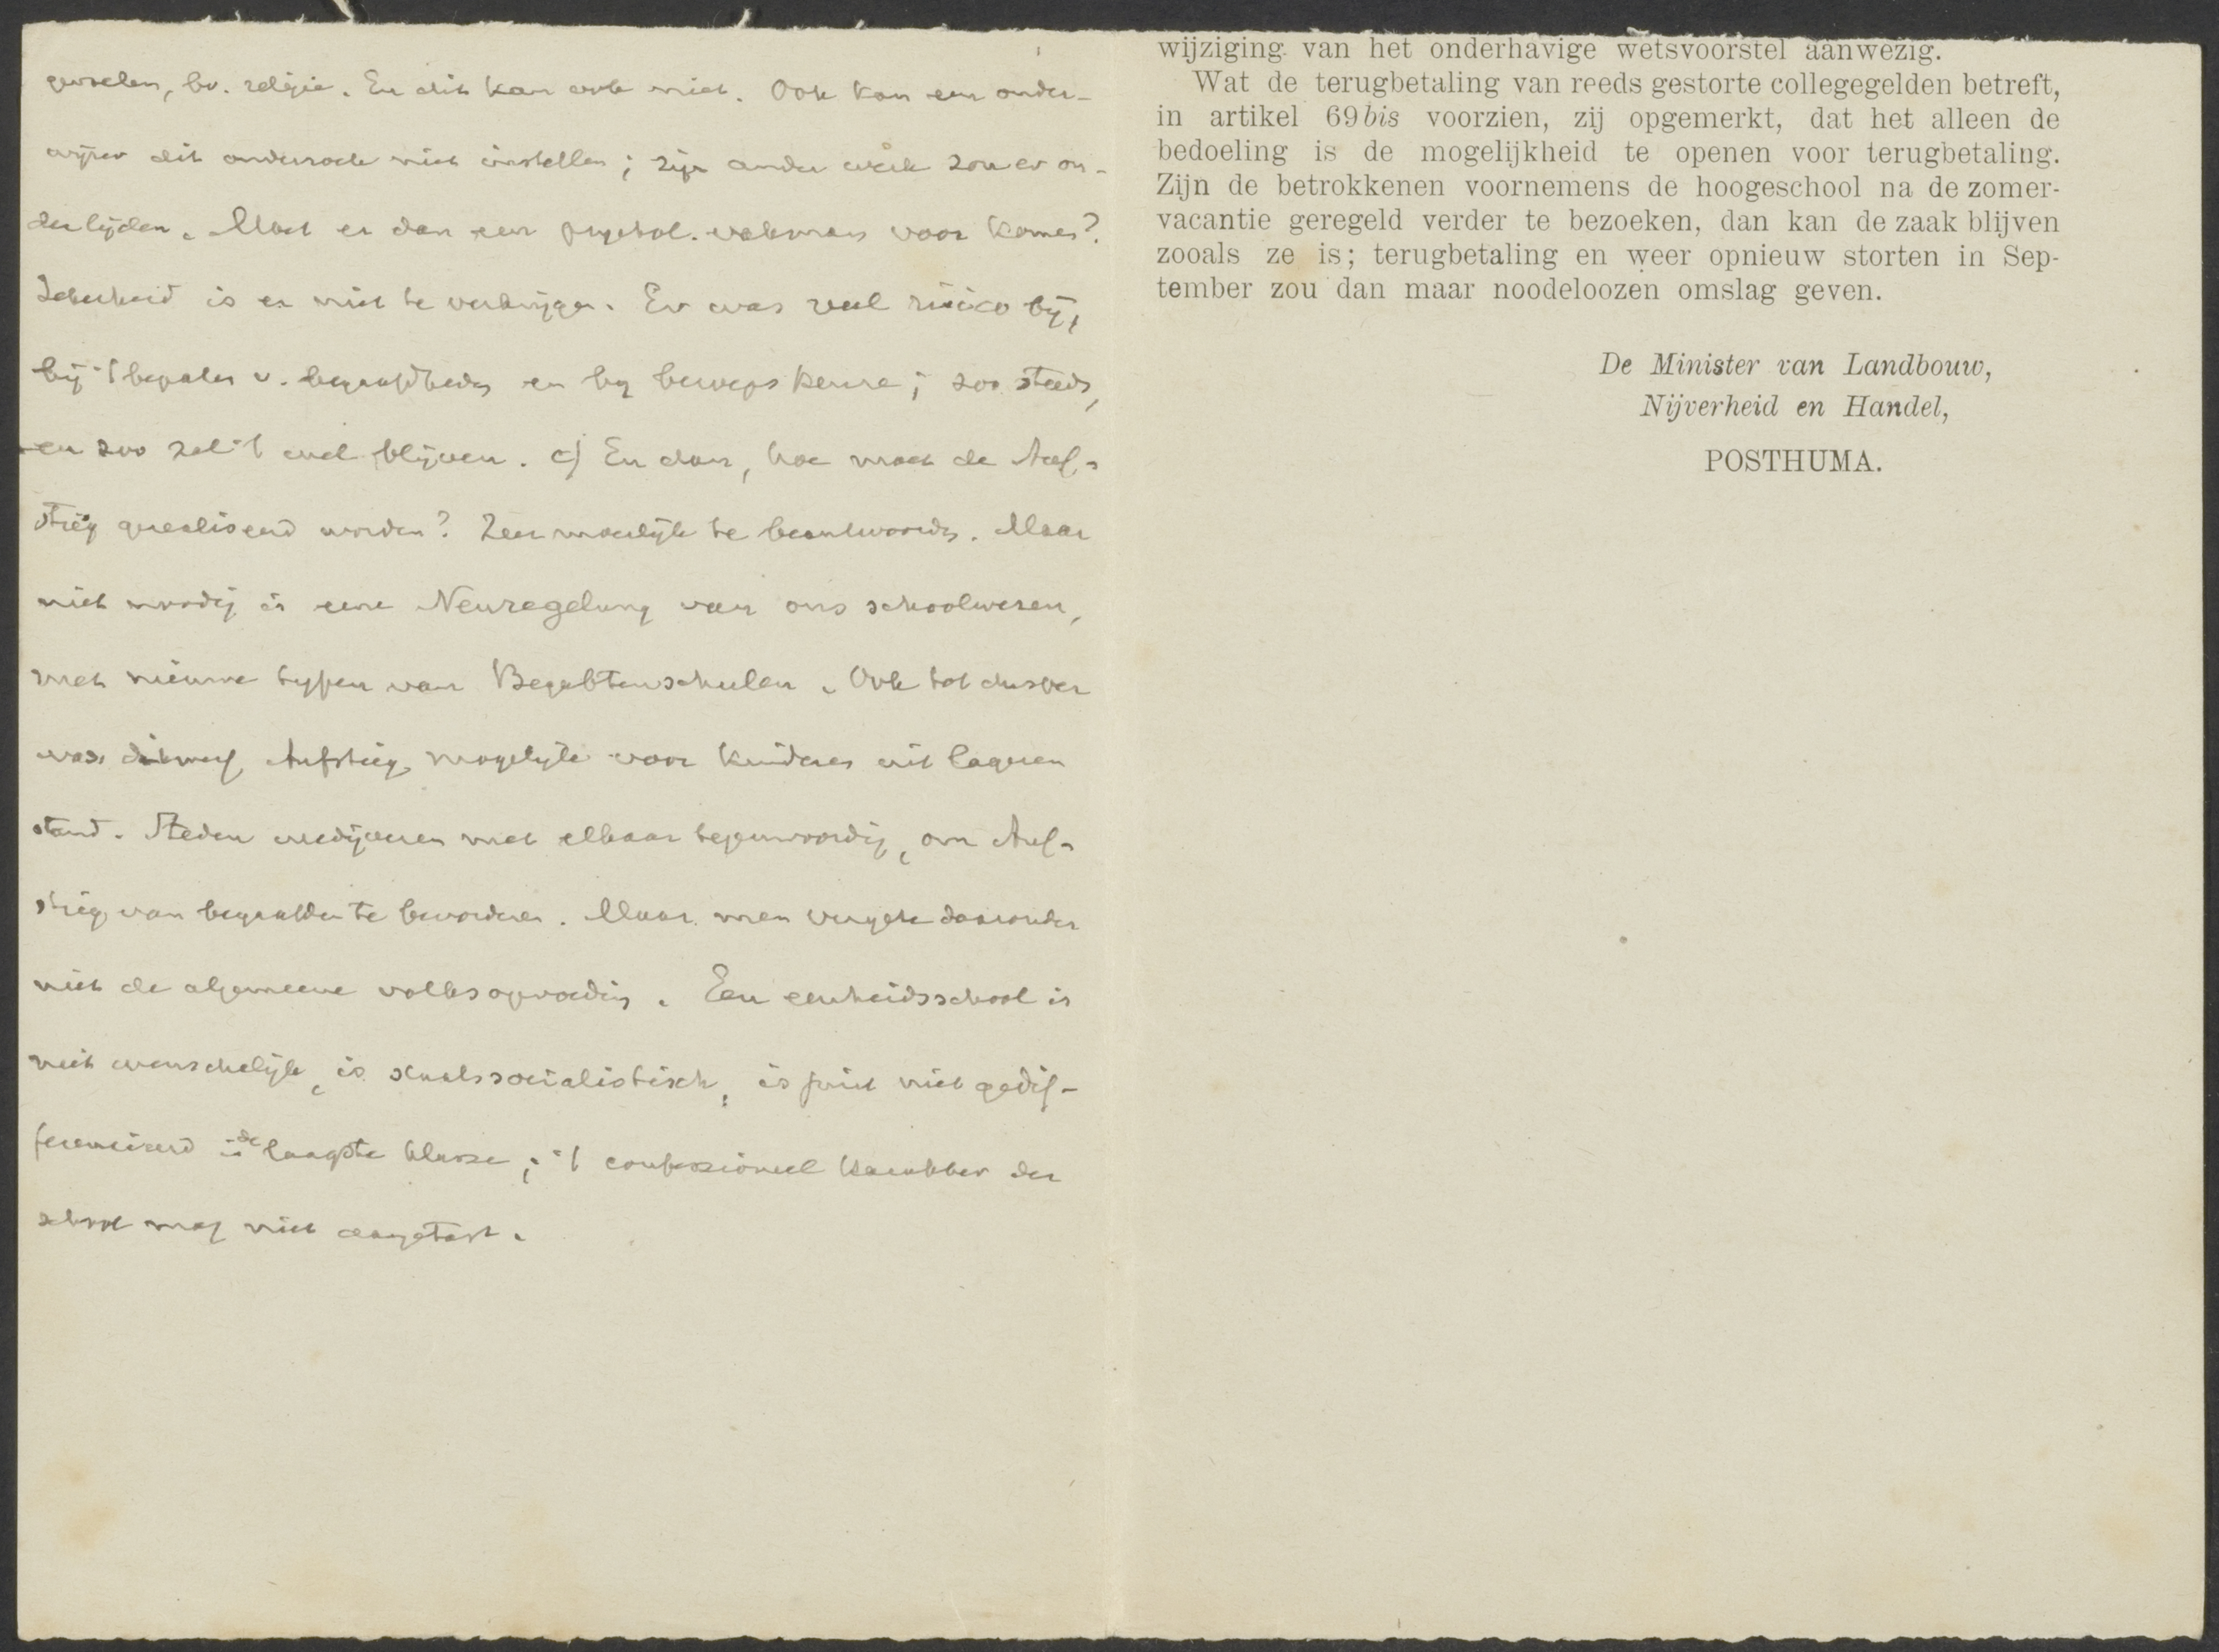 gevoelen, bv. religie. En dit kan ook niet. Ook kan een onder-
wijzer dit onderzoek niet instellen; zijn ander werk zou er on-
der lijden. Moet er dan een psychol. vakman voor komen?
Zekerheid is er niet te verkrijgen. Er was veel risico bij,
bij 't bepalen v. begaafdheden en bij beroepskeuze; zoo steeds,
en zoo zal 't wel blijven. c) En dan, hoe moet de Auf-
stieg gerealiseerd worden? Zeer moeilijk te beantwoorden. Maar
niet noodig is eene Neuregelung van ons schoolwezen,
met nieuwe typen van Begabtenschulen. Ook tot dusver
was dikwerf Aufstieg mogelijk voor kinderen uit lageren
stand. Steden wedijveren met elkaar tegenwoordig, om Auf-
stieg van begaafden te bevorderen. Maar men vergete daaronder
niet de algemeene volksopvoeding. Een eenheidsschool is
niet wenschelijk, is staatssocialistisch, is juist niet gedif-
ferencieerd in de laagste klasse; 't confessioneel karakter der
school mag niet aangetast.
wijziging van het onderhavige wetsvoorstel aanwezig.
Wat de terugbetaling van reeds gestorte collegegelden betreft,
in artikel 69bis voorzien, zij opgemerkt, dat het alleen de
bedoeling is de mogelijkheid te openen voor terugbetaling.
Zijn de betrokkenen voornemens de hoogeschool na de zomer-
vacantie geregeld verder te bezoeken, dan kan de zaak blijven
zooals ze is; terugbetaling en weer opnieuw storten in Sep-
tember zou dan maar noodeloozen omslag geven.
De Minister van Landbouw,
Nijverheid en Handel,
POSTHUMA.